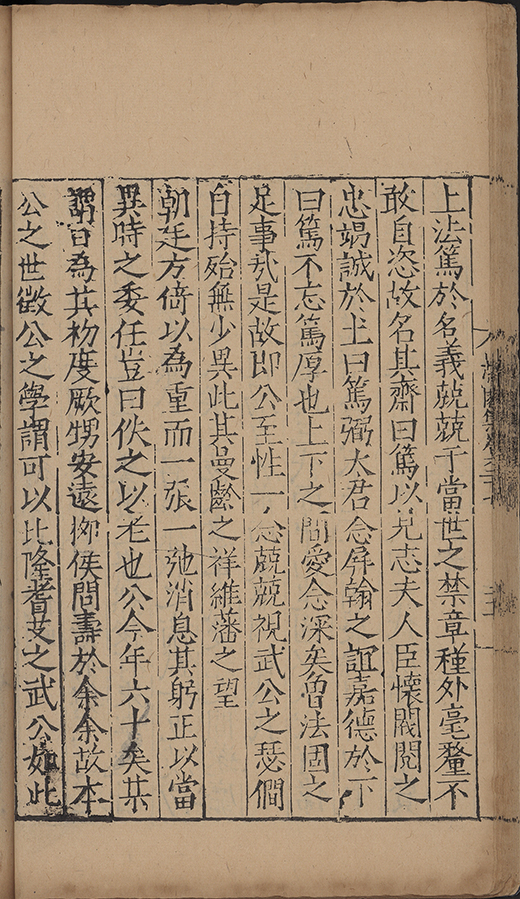 上法篤於名義兢兢于當世之禁章種外毫釐不
敢自恣故名其齋曰篤以見志夫人臣懷閥閱之
忠竭誠於上曰篤弼大君念屏翰之誼嘉德於下
曰篤不忘篤厚也上下之間愛念深矣魯法固之
足事哉是故即公至性一念兢兢視武公之瑟僩
自持殆無少異此其曼齡之祥維藩之望
朝廷方倚以為重而一張一弛消息其躬正以當
異時之委任豈曰佚之以老也公今年六十矣其
謂曰為其初度厥甥安遠柳侯問壽於余余故本
公之世徵公之學謂可以比隆耆艾之武公如此